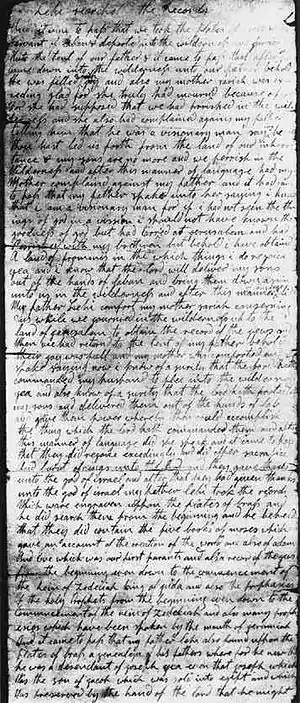 Lehi search the Records
it came to pass that we took the plates of
servant of Laban & departed into the wilderness & journied
unto the tent of our father & it came to pass that after
came down unto the wilderness unto our father behold
he was filled with and also my mother sariah was ex
ceding glad for she truly had mourned because of
for she had supposed that we had perrished in the wil
derness and she also had complained against my father
telling him that he was a visionary man saying
thou hast led us forth from the land of our inher
tance & my sons are no more and we perrish in the
wilderness and after this manner of language had my
mother complained against my father and it had
to pass that my father spake unto her saying I know
that I am a visionary man for if I had not seen the th
ings of god in a vision I should not have known the
goodness of god but had tarried at jerusalem and had
perrished with my brethren but behold I have obtained
a land of promise in the which things I do rejoice
yea and I know that the Lord will deliver my sons
out of the hands of Laban and bring them down again
unto us in the wilderness and after this manner did
my father lehi comfort my mother sariah concerning
us while we journied in the wilderness up to the
land of jerusalem to obtain the record of the jews and
when we had returned to the tent of my father behold
their joy was full and my mother was comforted and
spake saying now I know of a surity that the Lord hath
commanded my husband to flee into the wilderness
yea and also know of a surity that the Lord hath protected
my sons and delivered them out of the hands of
given them power whereby they could accomplish
the thing which the Lord hath commanded them and after
this manner of language did she speak and it came to pass
that they did rejoice excedingly and did offer sacrifice
and burnt offerings unto the Lord and they gave thanks
unto the god of israel and after that they had given thanks
unto the god of israel my father Lehi took the records
which were engraven uppon the plates of brass and
he did search them from the beginning and he beheld
that they did contain the five books of moses which
gave an account of the creation of the world and also of adam
and eve which was our first parants and also a record of the jews
from the beginning even down to the commencement of
the reign of zedeciah king of judah and also the prophecies
of the holy prophets from the beginning even down to the
commencement of the reign of zedekiah and also many proph
esies which have been spoken by the mouth of jeremiah
and it came to pass that my father Lehi also found uppon the
plates of brass a geneology of his fathers wherefore he knew that
he was a desendant of joseph yea even that joseph which
was the son of jacob which was sold into egypt and which
was preserved by the hand of the lord that he might